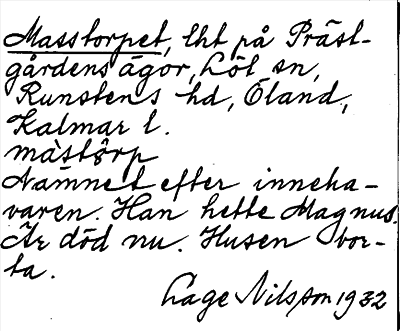 Masstorpet, lht på Präst-
gårdens ägor, Löt sn,
Runstens hd, Öland,
Kalmar l.
màstǫ̀rp
Namnet efter inneha-
varen. Han hette Magnus.
Är död nu. Husen bor-
ta.
Lage Nilsson 1932